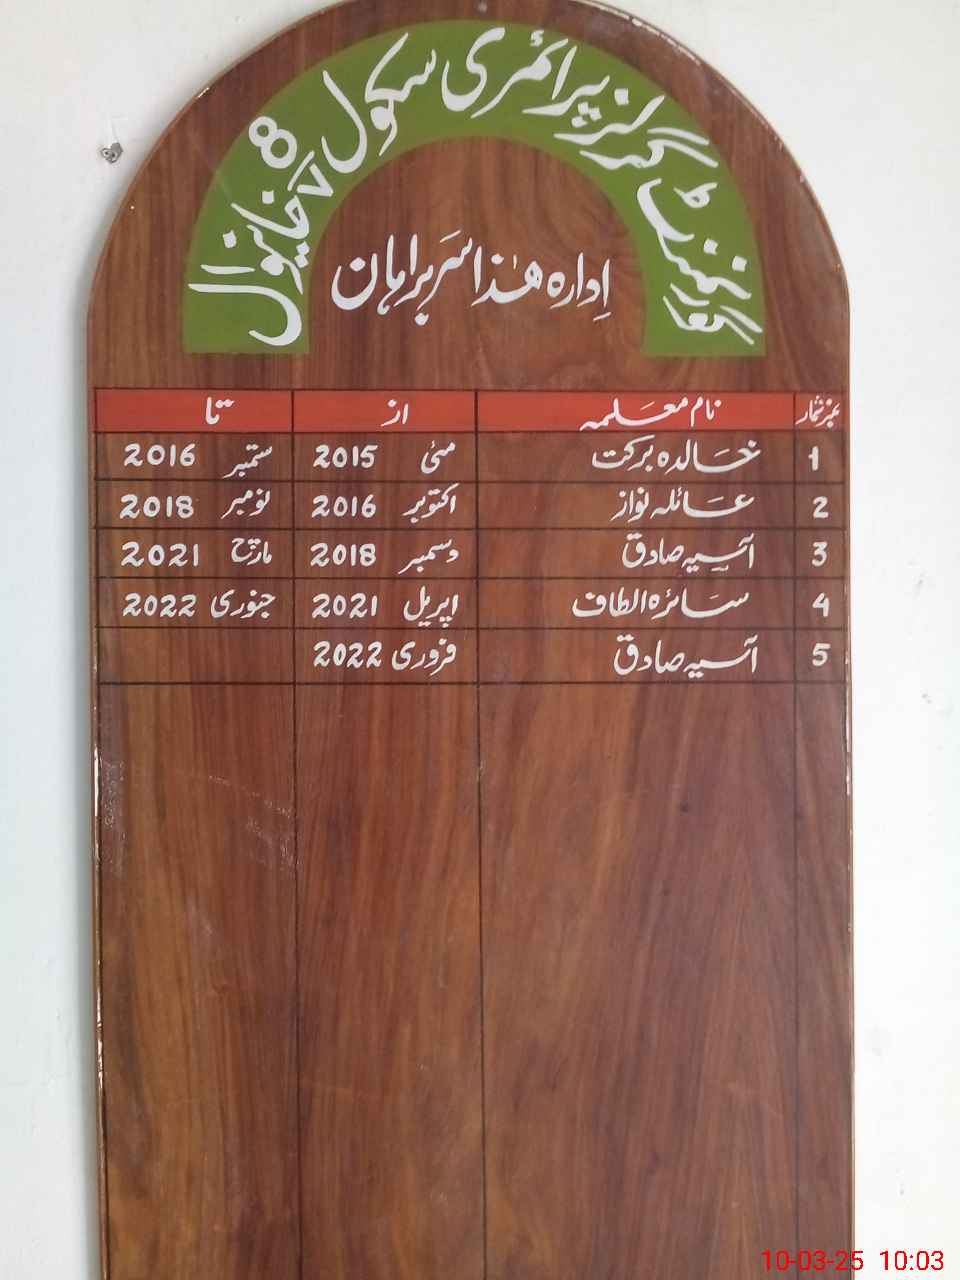 گورنمنٹ گرلز پرائمری سکول 8 خانیوال
اِدارہ ھٰذا سَربراہان
نمبر شمار نام معلمہ از تا
1 خالدہ برکت مئی 2015 ستمبر 2016
2 عائلہ نواز اکتوبر 2016 نومبر 2018
3 آسیہ صادق دسمبر 2018 مارچ 2021
4 سائرہ الطاف اپریل 2021 جنوری 2022
5 آسیہ صادق فروری 2022
10-03-25 10:03